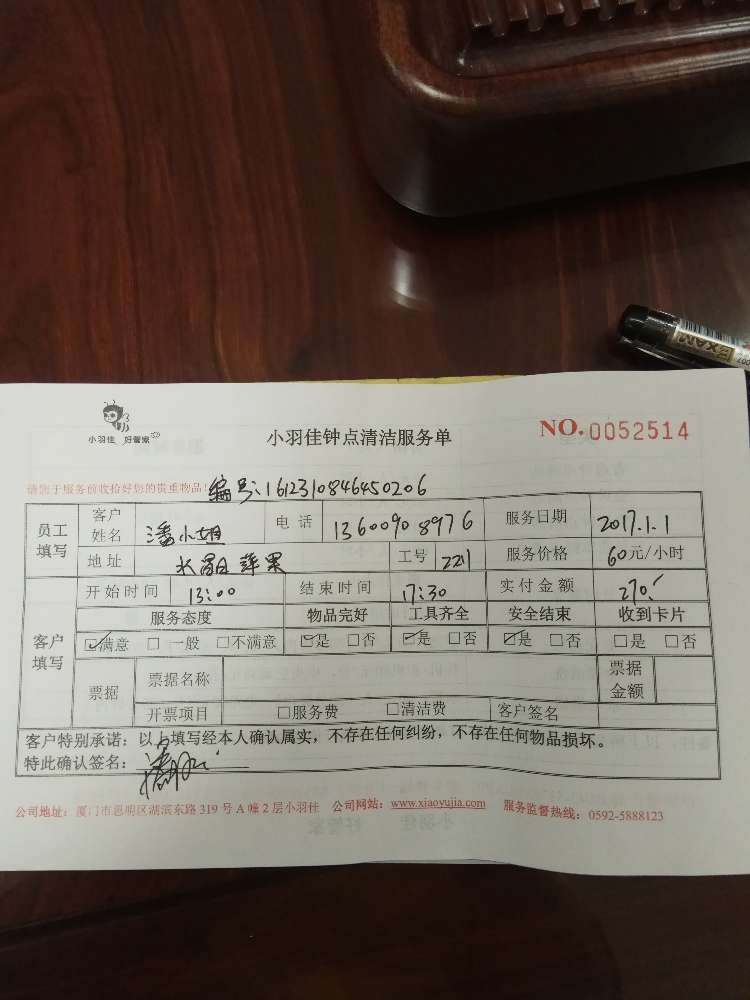 小羽佳 好管家
小羽佳钟点清洁服务单
NO.0052514
请您于服务前收拾好您的贵重物品!
编号:1612310846450206
员工填写 客户姓名 潘小姐 电话 13600908976 服务日期 2017.1.1
地址 苹果 工号 221 服务价格 60元/小时
客户填写 开始时间 13:00 结束时间 17:30 实付金额 270.-
服务态度 物品完好 工具齐全 安全结束 收到卡片
☑满意 □一般 □不满意 ☑是 □否 ☑是 □否 ☑是 □否 □是 □否
票据 票据名称 票据金额
开票项目 □服务费 □清洁费 客户签名
客户特别承诺:以上填写经本人确认属实,不存在任何纠纷,不存在任何物品损坏。
特此确认签名:
公司地址:厦门市思明区湖滨东路319号A幢2层小羽佳 公司网站:www.xiaoyujia.com 服务监督热线:0592-5888123
EXAM